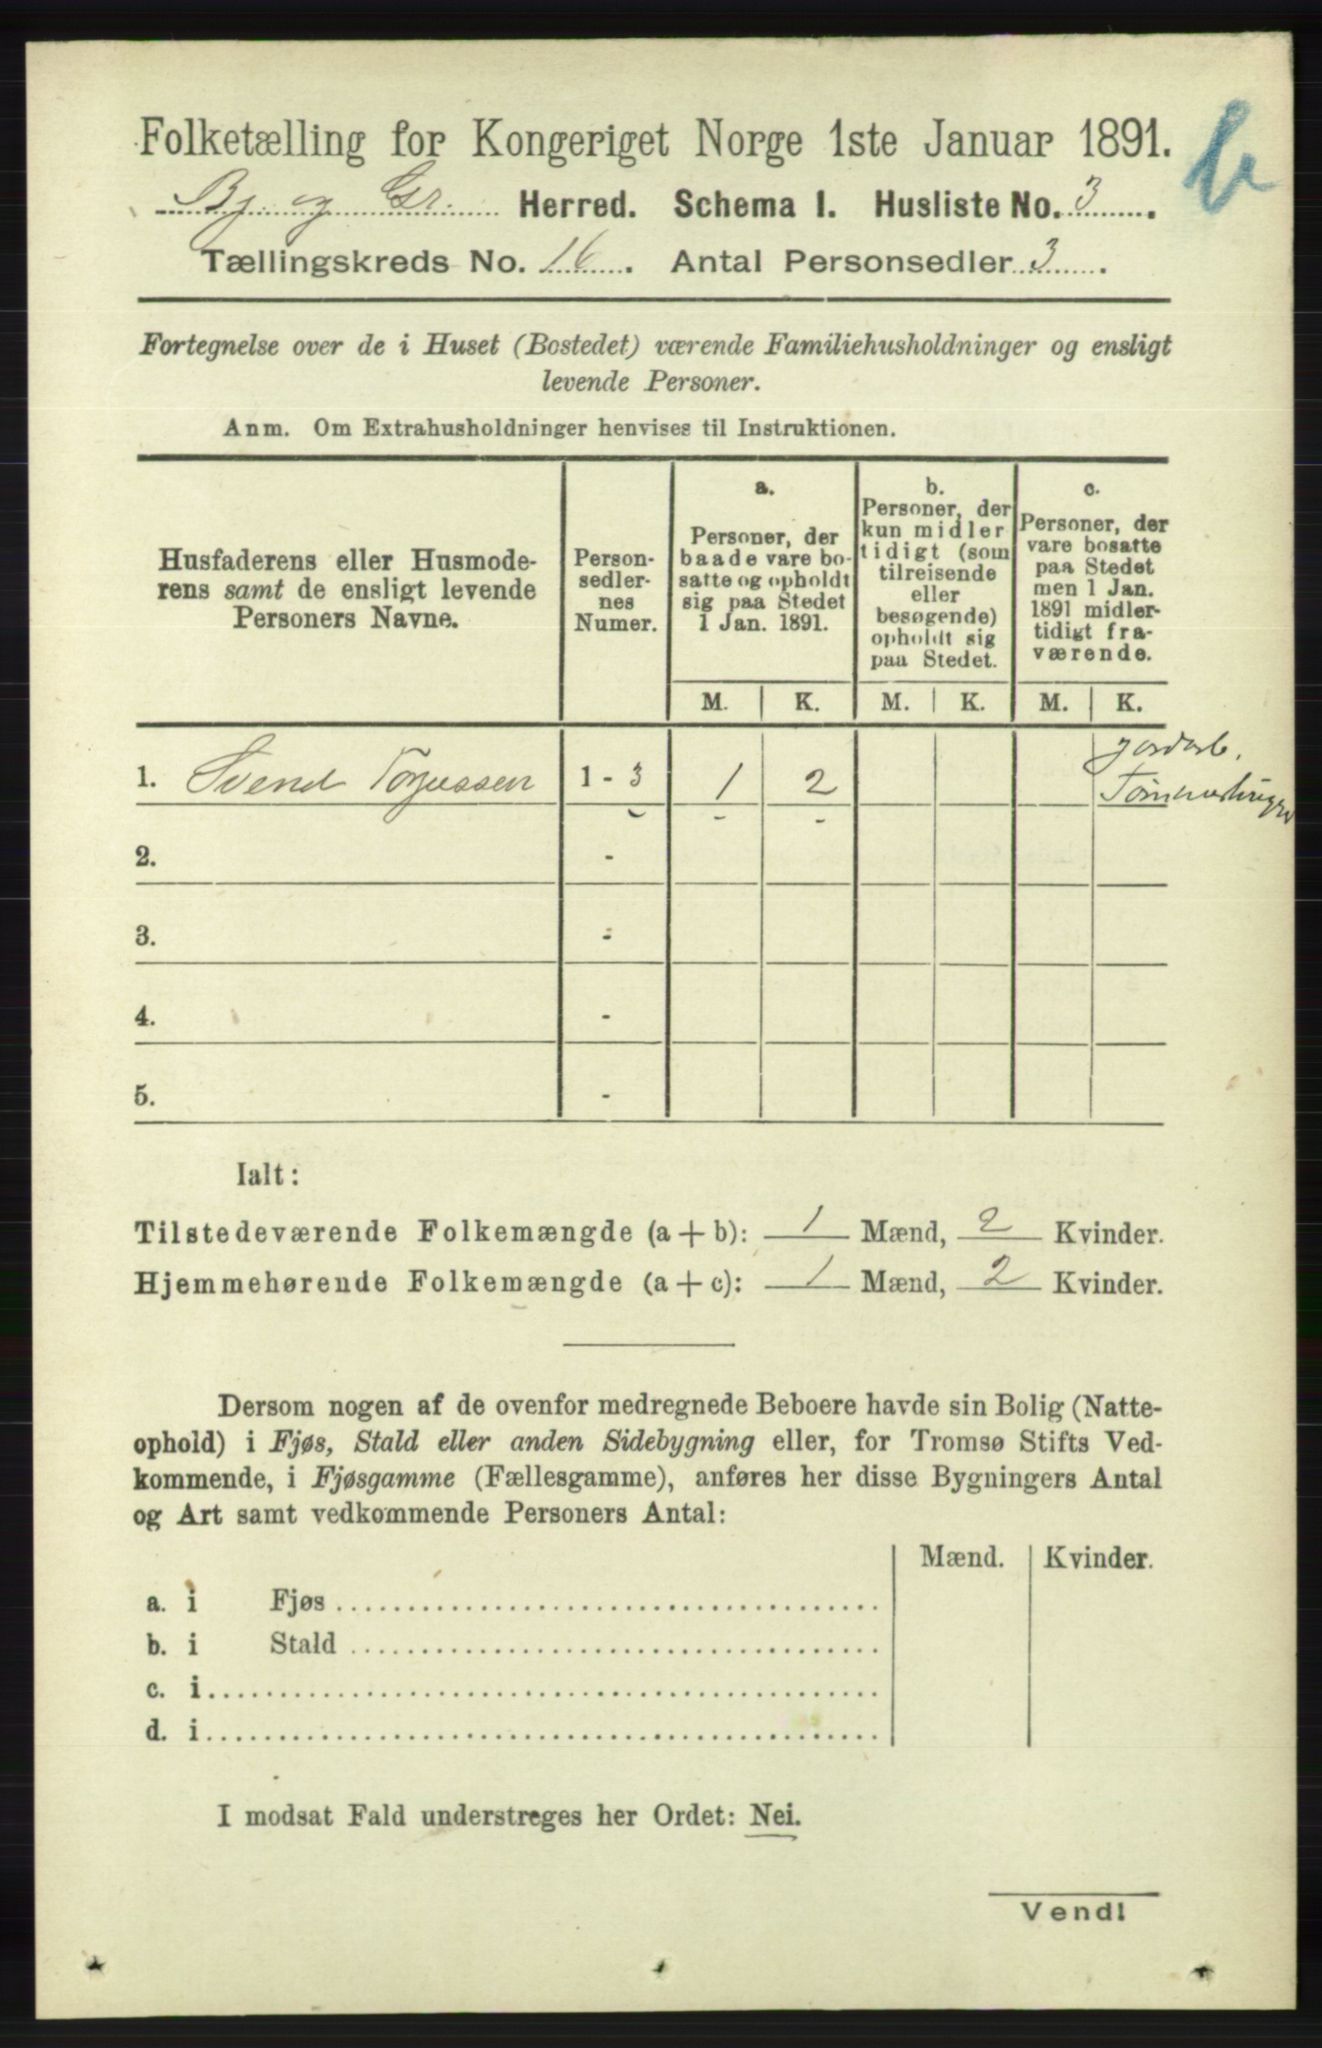 Folketælling for Kongeriget Norge 1ste Januar 1891.
b
Bj. og Gr. Herred. Schema I. Husliste No. 3.
Tællingskreds No. 16. Antal Personsedler 3.
Fortegnelse over de i Huset (Bostedet) værende Familiehusholdninger og ensligt
levende Personer.
Anm. Om Extrahusholdninger henvises til Instruktionen.
Husfaderens eller Husmode-
rens samt de ensligt levende
Personers Navne.
Person-
sedler-
nes
Numer.
a.
Personer, der
baade vare bo-
satte og opholdt
sig paa Stedet
1 Jan. 1891.
b.
Personer, der
kun midler
tidigt (som
tilreisende
eller
besøgende)
opholdt sig
paa Stedet.
c.
Personer, der
vare bosatte
paa Stedet
men 1 Jan.
1891 midler-
tidigt fra-
værende.
M. K. M. K. M. K.
Jordarb.
1. Svend Torjussen 1 - 3 1 2
2. -
3. -
4. -
5. -
Ialt:
Tilstedeværende Folkemængde (a + b): 1 Mænd, 2 Kvinder.
Hjemmehørende Folkemængde (a + c): 1 Mænd, 2 Kvinder.
Dersom nogen af de ovenfor medregnede Beboere havde sin Bolig (Natte-
ophold) i Fjøs, Stald eller anden Sidebygning eller, for Tromsø Stifts Ved-
kommende, i Fjøsgamme (Fællesgamme), anføres her disse Bygningers Antal
og Art samt vedkommende Personers Antal:
Mænd. Kvinder.
a. i Fjøs
b. i Stald
c. i
d. i
I modsat Fald understreges her Ordet: Nei.
Vend!